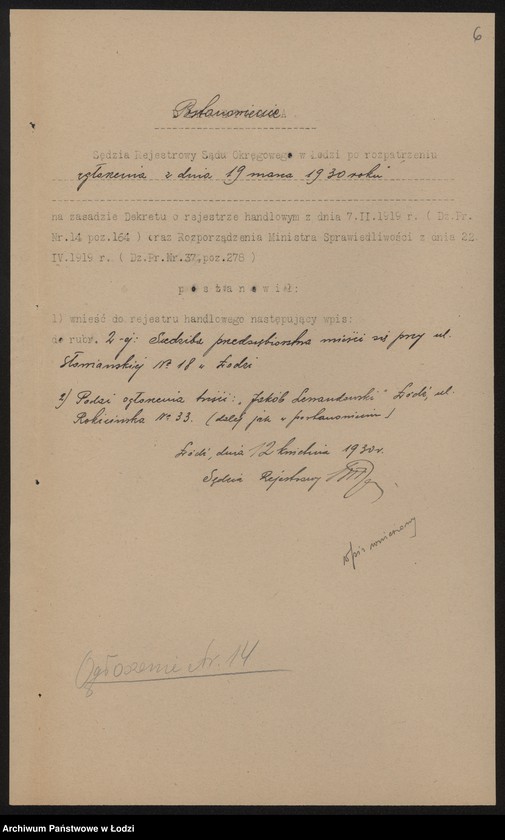 6
Postanowienie
Sędzia Rejestrowy Sądu Okręgowego w Łodzi po rozpatrzeniu
zgłoszenia z dnia 19 marca 1930 roku
na zasadzie Dekretu o rejestrze handlowym z dnia 7.II.1919 r. ( Dz.Pr.
Nr.14 poz.164 ) oraz Rozporządzenia Ministra Sprawiedliwości z dnia 22
IV.1919 r. ( Dz.Pr.Nr.37,poz.278 )
p o s t a n o w i ł:
1) wnieść do rejestru handlowego następujący wpis:
do rubr. 2-ej: Siedziba przedsiębiorstwa mieści się przy ul.
Nr 18 w Łodzi
2) zgłoszenia treści: "Jakób Lewandowski" Łódź, ul.
Rokicińska Nr. 33. (dalej jak w postanowieniu)
Łódź, dnia 12 kwietnia 1930 r.
Sędzia Rejestrowy
Wpis
Ogłoszenie Nr. 14
Archiwum Państwowe w Łodzi